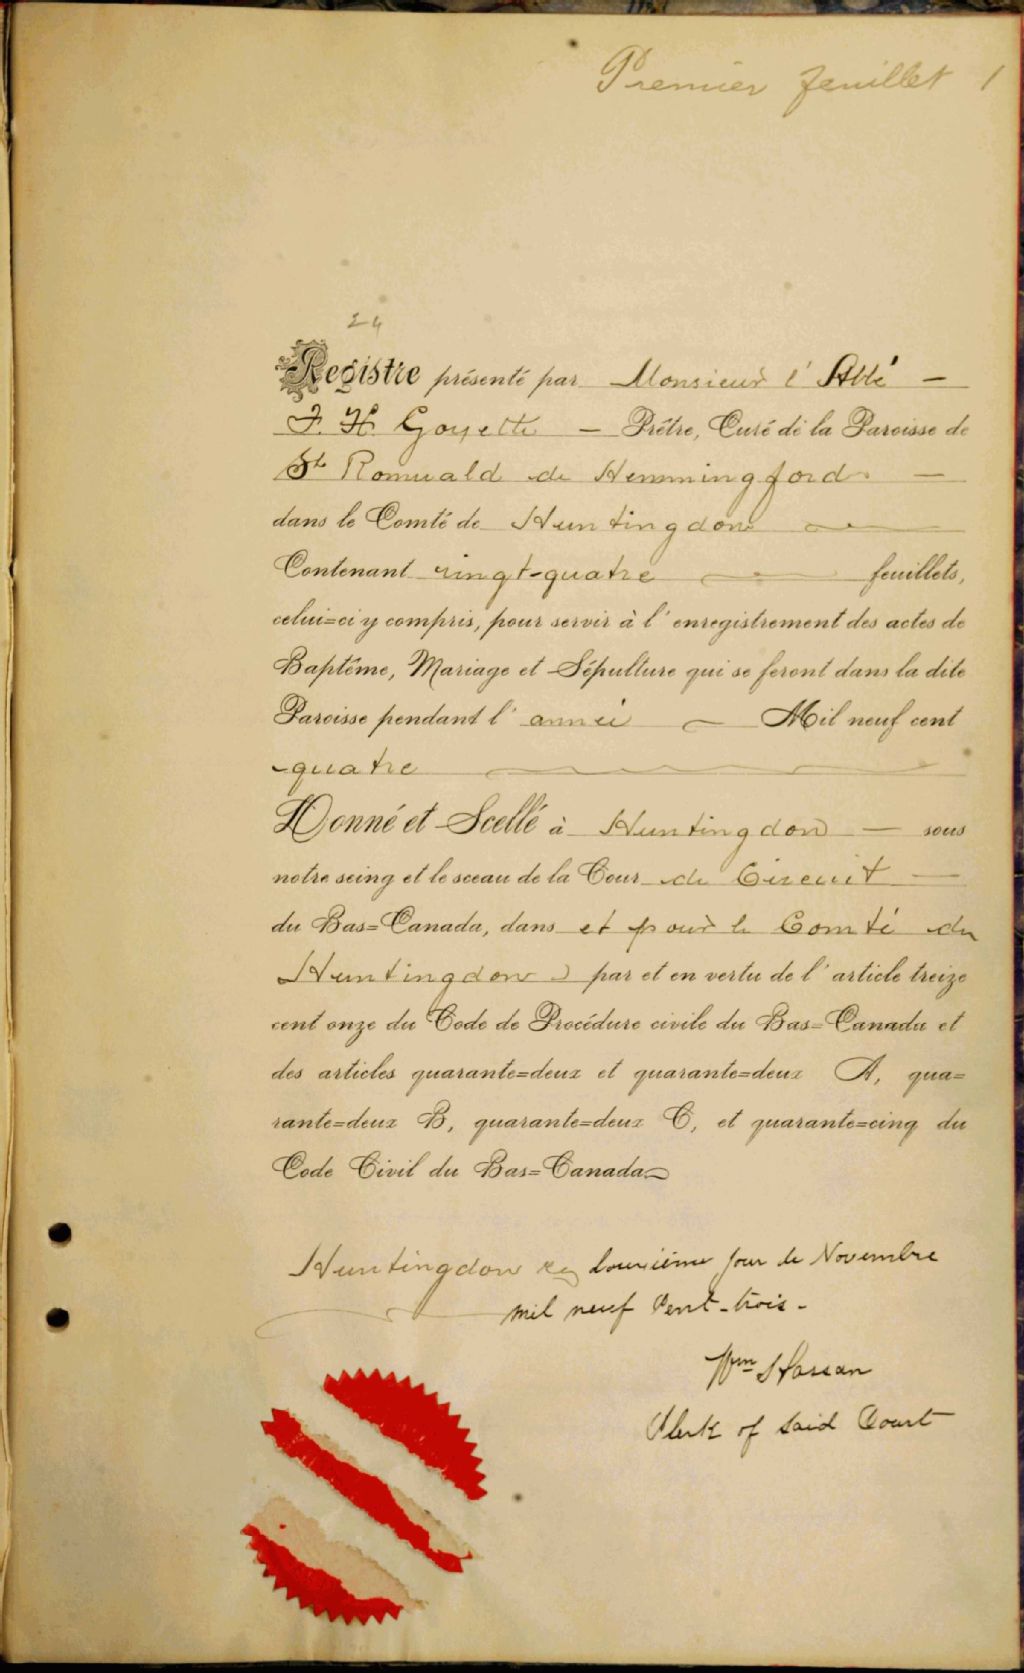 Premier feuillet 1
24
Registre présenté par Monsieur l'Abbé —
F. H. Goyette — Prêtre, Curé de la Paroisse de
St Romuald de Hemmingford —
dans le Comté de Huntingdon
Contenant vingt-quatre feuillets,
celui=ci y compris, pour servir à l'enregistrement des actes de
Baptême, Mariage et Sépulture qui se feront dans la dite
Paroisse pendant l'année — Mil neuf cent
quatre
Donné et Scellé à Huntingdon — sous
notre seing et le sceau de la Cour de Circuit —
du Bas=Canada, dans et pour le Comté de
Huntingdon par et en vertu de l'article treize
cent onze du Code de Procédure civile du Bas=Canada et
des articles quarante=deux et quarante=deux A, qua=
rante=deux B, quarante=deux C, et quarante=cinq du
Code Civil du Bas=Canada
Huntingdon ce douzième jour de Novembre
mil neuf Cent-trois-
Wm
Clerk of Said Court